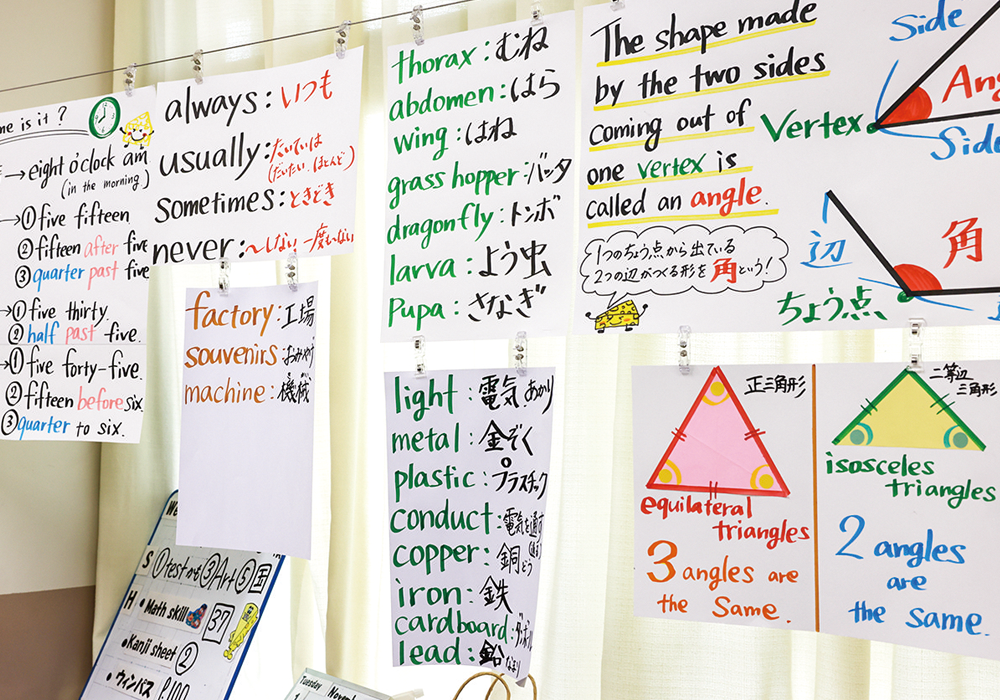 me is it ?
→ eight o'clock am
(in the morning)
→① five fifteen
② fifteen after five
③ quarter past five
→① five thirty.
② half past five.
→① five forty-five.
② fifteen before six.
③ quarter to six.
always : いつも
usually : たいていは
(だいたい、ほとんど)
sometimes : ときどき
never : 〜しない
factory : 工場
souvenirs : おみやげ
machine : 機械
thorax : むね
abdomen : はら
wing : はね
grass hopper : バッタ
dragonfly : トンボ
larva : よう虫
Pupa : さなぎ
light : 電気、あかり
metal : 金ぞく
plastic : プラスチック
conduct : 電気を通す
copper : 銅 どう
iron : 鉄
cardboard : ダンボール
lead : 鉛 なまり
The shape made
by the two sides
coming out of
one vertex is
called an angle.
1つのちょう点から出ている
2つの辺がつくる形を角という!
Side
Vertex
Ang
Side
辺
角
ちょう点
正三角形
equilateral
triangles
3 angles are
the same.
二等辺
三角形
isosceles
triangles
2 angles
are
the same.
We
S ① test ③ Art ⑤ 国
H • Math skill 37
• Kanji sheet ②
• ウィンパス P100
Tuesday Novem